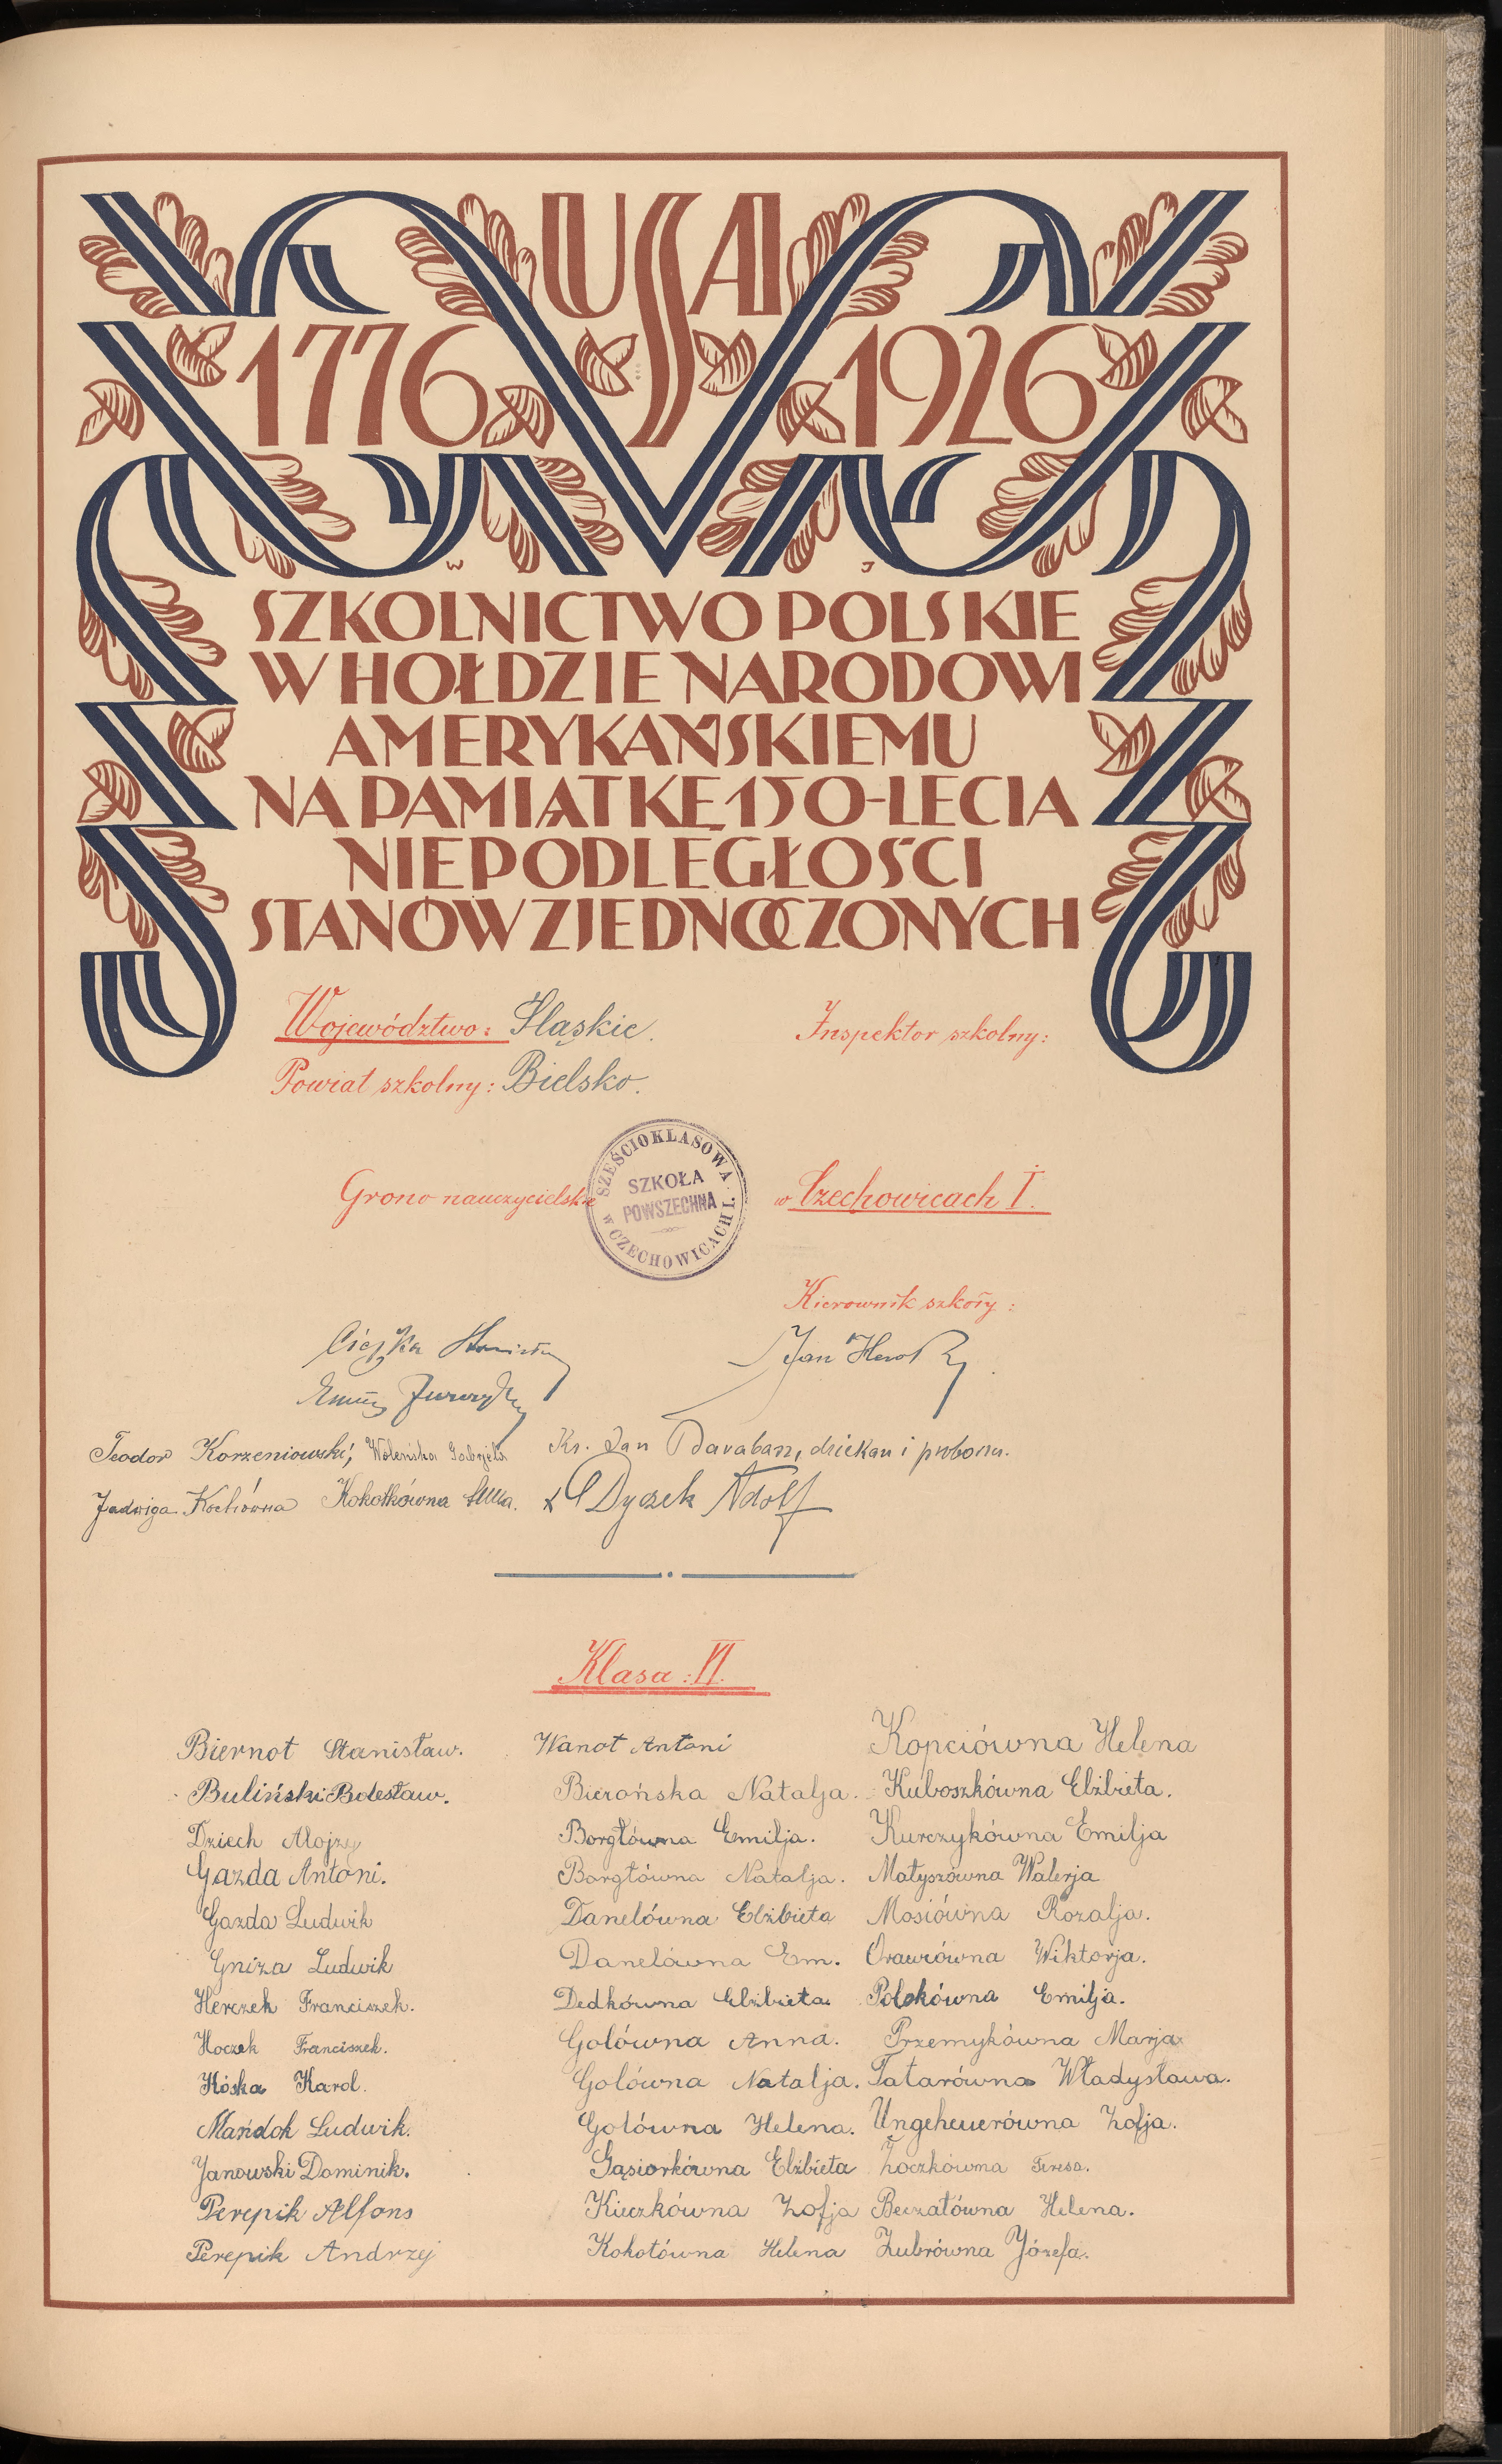 USA
1776 1926
W J
SZKOLNICTWO POLSKIE
W HOŁDZIE NARODOWI
AMERYKAŃSKIEMU
NA PAMIĄTKĘ 150-LECIA
NIEPODLEGŁOŚCI
STANÓW ZJEDNOCZONYCH
Województwo: Śląskie.
Inspektor szkolny:
Powiat szkolny: Bielsko.
Grono nauczycielskie
SZEŚCIOKLASOWA
SZKOŁA
POWSZECHNA
w CZECHOWICACH I.
w Czechowicach I.
Kierownik szkoły:
Jan
Teodor Korzeniowski, Woleńska Gabrjela
Ks. Jan Barabasz, dziekan i proboszcz.
Jadwiga Kochówna Kokotkówna Anna.
Dyczek Adolf
Klasa: VI.
Biernot Stanisław.
Buliński Bolesław.
Dziech Alojzy
Gazda Antoni.
Gazda Ludwik
Gniza Ludwik
Herczek Franciszek.
Hoczek Franciszek.
Kóska Karol.
Mańdok Ludwik.
Janowski Dominik.
Perepik Alfons
Perepik Andrzej
Wanot Antoni
Bierońska Natalja.
Borgłówna Emilja.
Borgłówna Natalja.
Danelówna Elżbieta
Danelówna Em.
Dedkówna Elżbieta
Golówna Anna.
Golówna Natalja.
Golówna Helena.
Gąsiorkówna Elżbieta
Kieczkówna Zofja
Kokotówna Helena
Kopciówna Helena
Kuboszkówna Elżbieta.
Kurczykówna Emilja
Matyszówna Walerja
Mosiówna Rozalja.
Orawcówna Wiktorja.
Polokówna Emilja.
Przemykówna Marja
Tatarówna Władysława.
Ungeheuerówna Zofja.
Żoczkówna Teresa.
Beczałówna Helena.
Zubrówna Józefa.